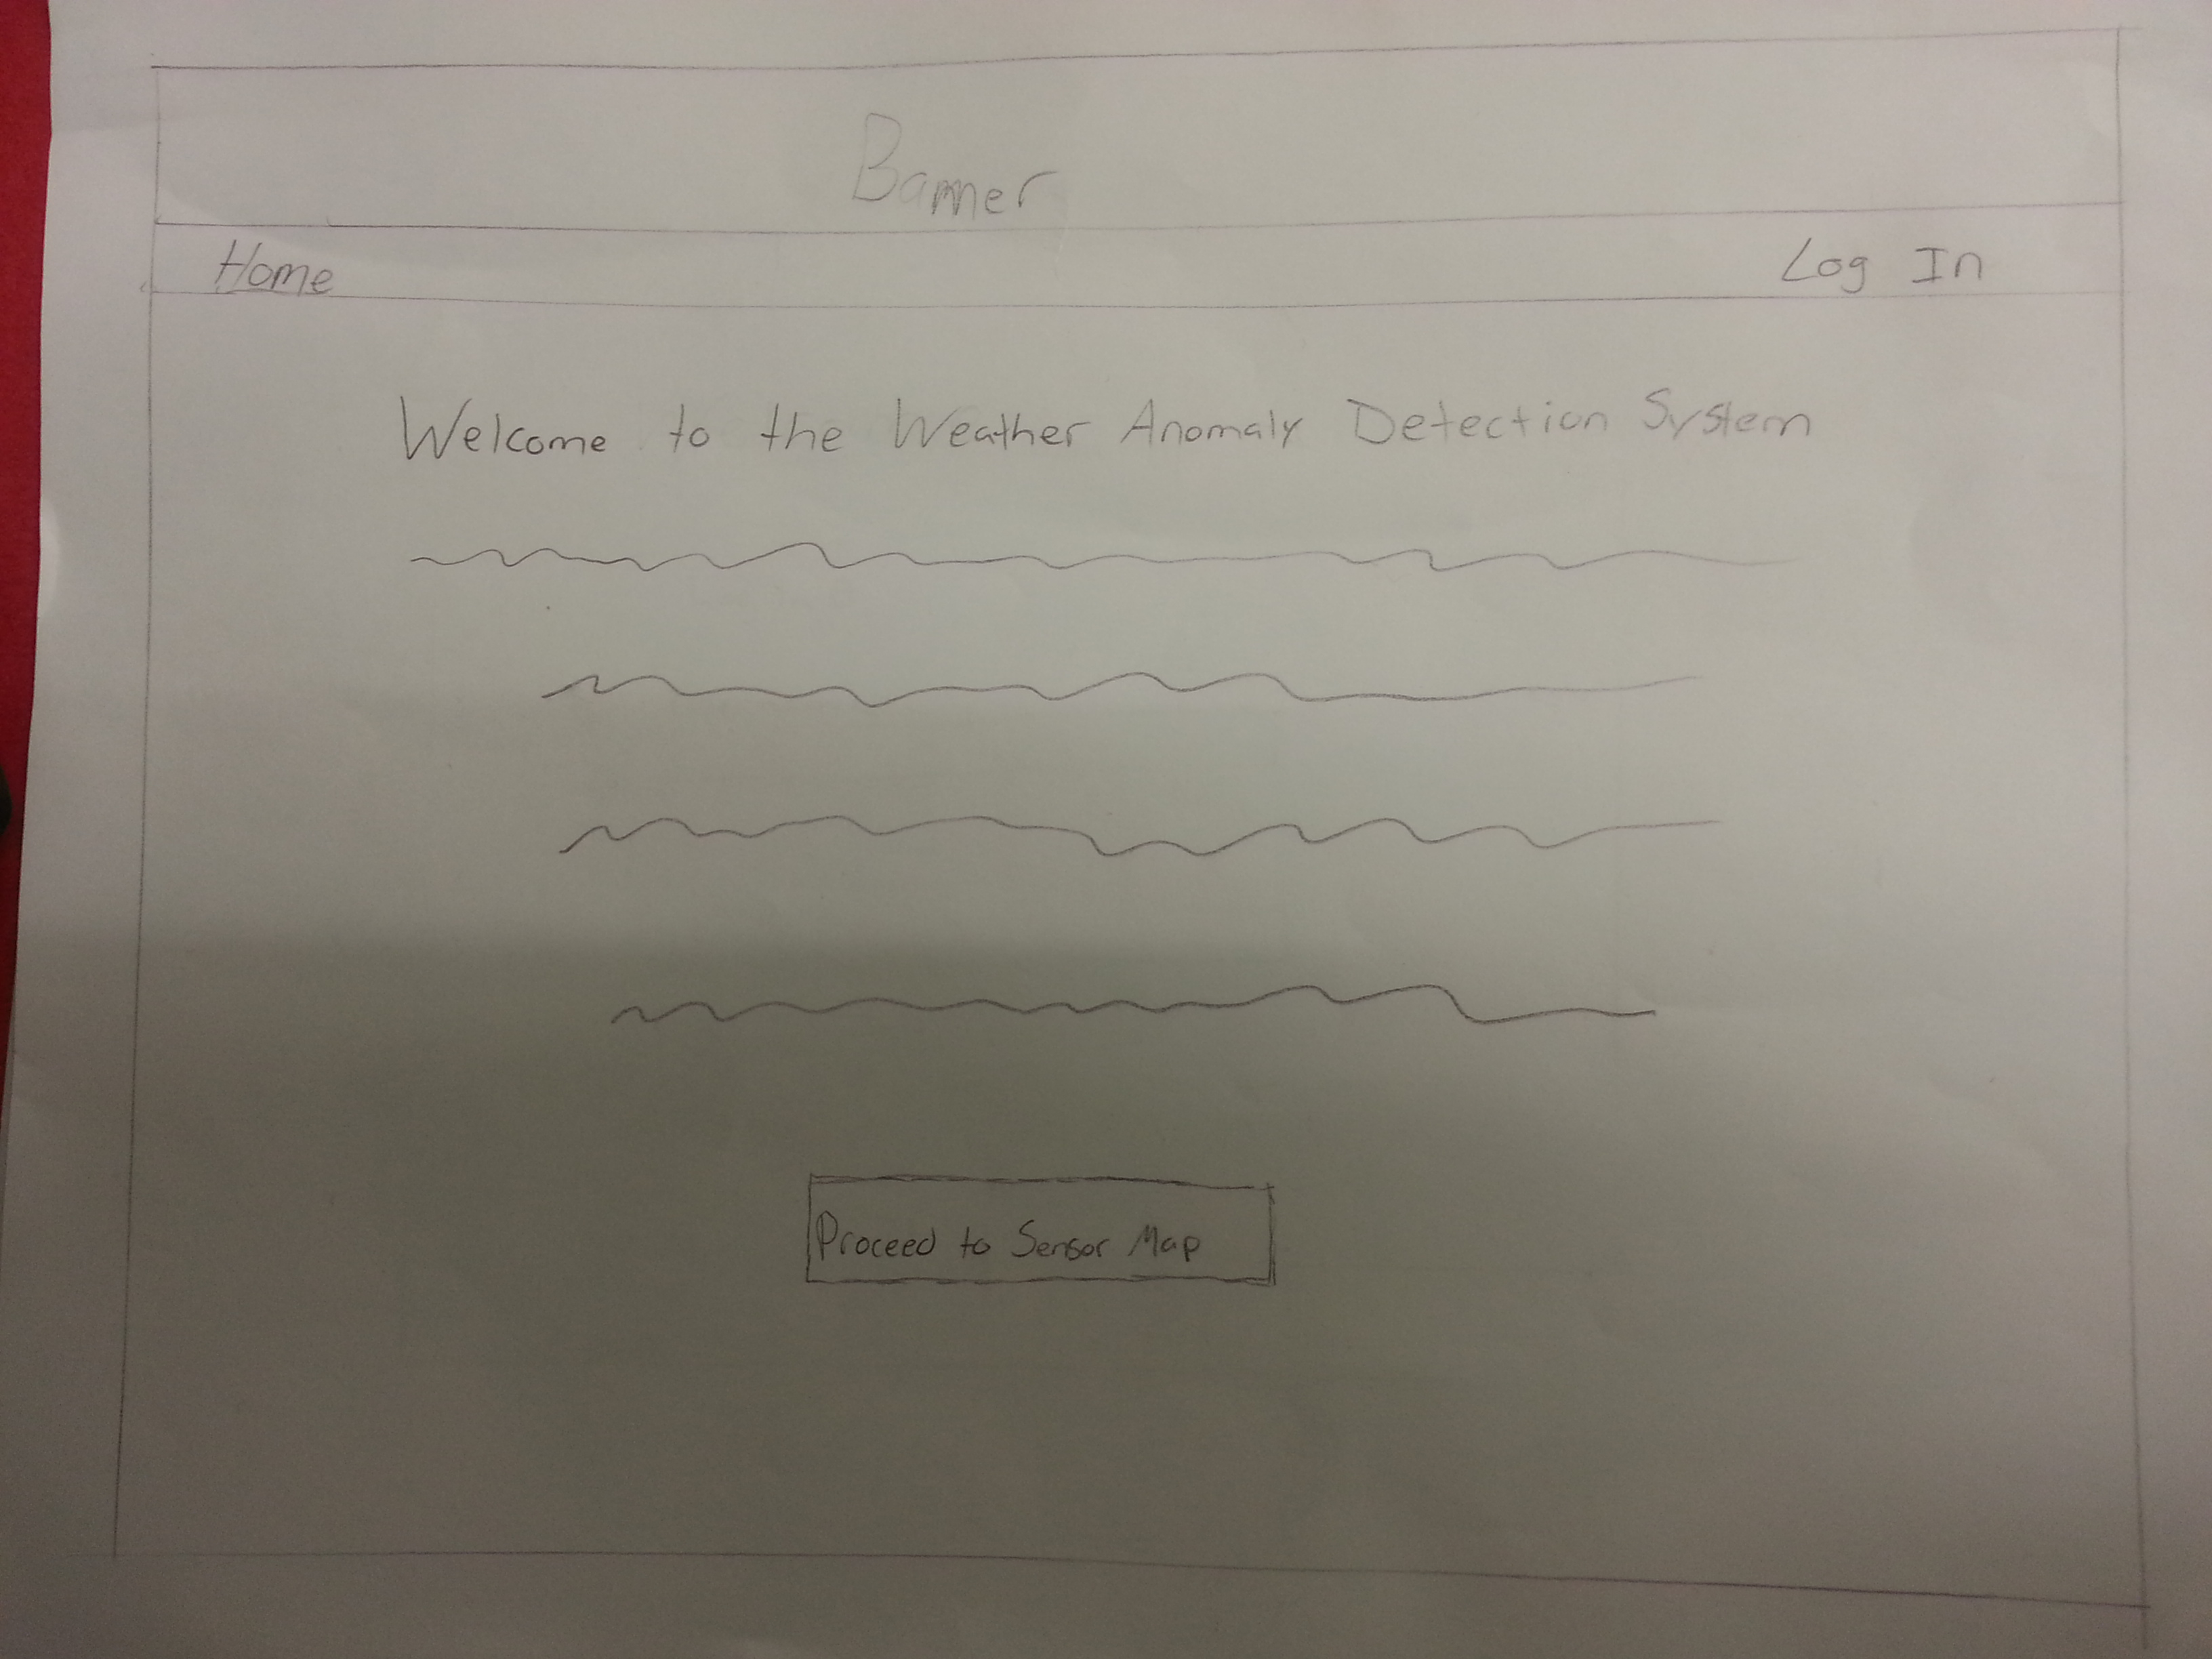 Banner
Home Log In
Welcome to the Weather Anomaly Detection System
Proceed to Sensor Map